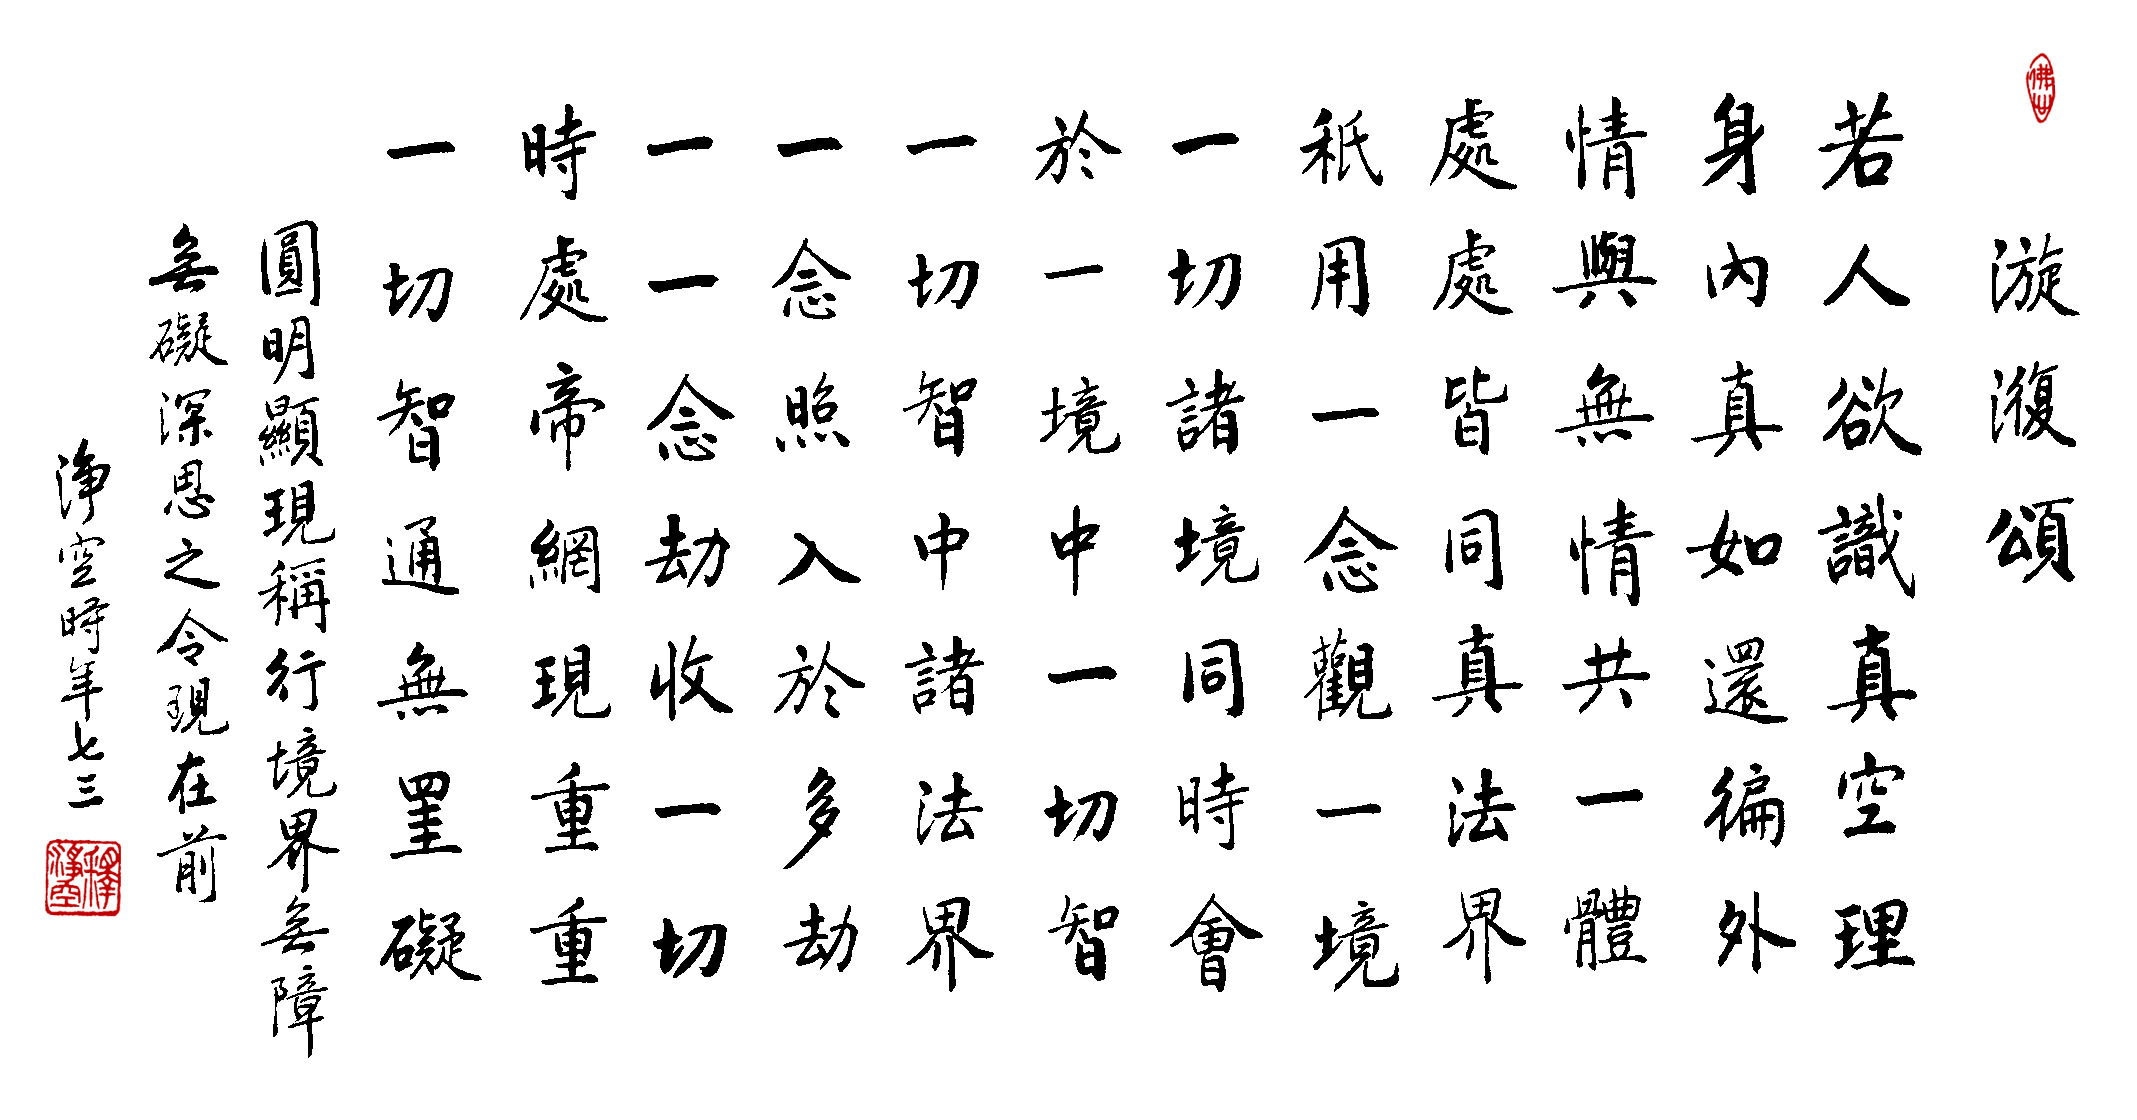 漩澓頌
若人欲識真空理
身內真如還徧外
情與無情共一體
處處皆同真法界
秖用一念觀一境
一切諸境同時會
於一境中一切智
一切智中諸法界
一念照入於多劫
一一念劫收一切
時處帝網現重重
一切智通無罣礙
圓明顯現稱行境界無障
無礙深思之令現在前
淨空時年七三
釋淨空